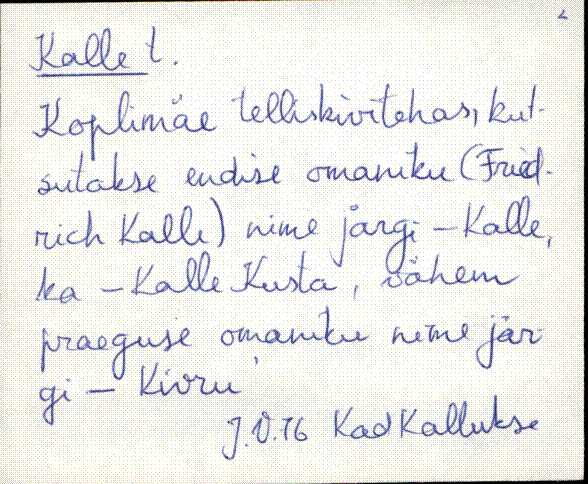 Kalle t.
Koplimäe telliskivitehas, kut-
sutakse endise omaniku (Fried-
rich Kalle) nime järgi – Kalle,
ka – Kalle Kusta, vähem
praeguse omaniku nime jär-
gi – Kivru
J.V.76 Kad Kallukse